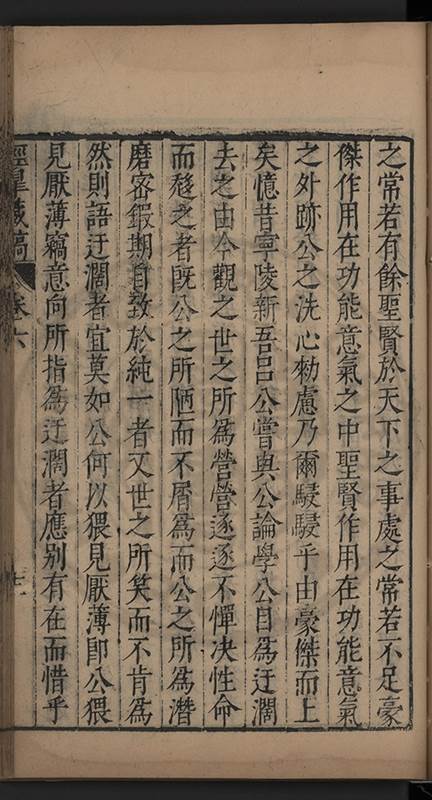 之常若有餘聖賢於天下之事處之常若不足豪
傑作用在功能意氣之中聖賢作用在功能意氣
之外跡公之洗心勑慮乃爾駸駸乎由豪傑而上
矣憶昔寧陵新吾呂公嘗與公論學公自為迂濶
去之由今觀之世之所為營營逐逐不憚決性命
而趨之者旣公之所陋而不屑為而公之所為潛
磨宻鍜期自致於純一者又世之所笑而不肯為
然則語迂濶者宜莫如公何以猥見厭薄卽公猥
見厭薄竊意向所指為迂濶者應别有在而惜乎
涇臯藏稿 卷六